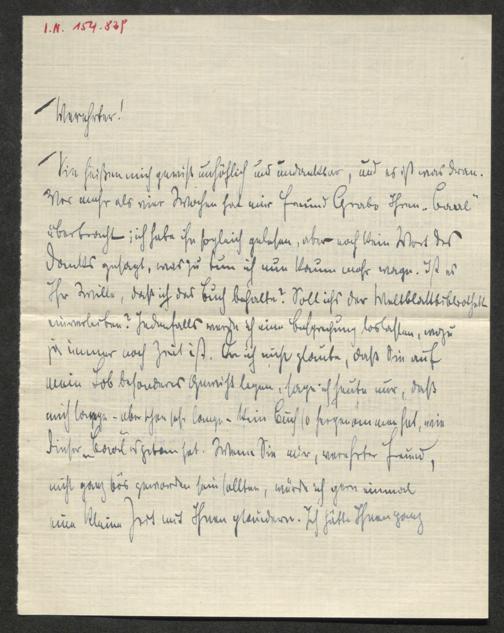 I.N. 154.839
Verehrter!
Sie heißen mich gewiß unhöflich und undankbar, und es ist was dran.
Vor mehr als vier Wochen hat mir Freund Grabo Ihren „Saul“
überbracht; ich habe ihn sogleich gelesen, aber noch kein Wort des
Danks gesagt, was zu tun ich nun kaum mehr wage. Ist es
Ihr Wille, daß ich das Buch behalte? Soll ichs der Weltblattbibliothek
einverleiben? Jedenfalls werde ich eine Besprechung loslassen, wozu
ja immer noch Zeit ist. Da ich nicht glaube, daß Sie auf
mein Lob besonderes Gewicht legen, sage ich heute nur, daß
mich lange - aber schon sehr lange - kein Buch so hergenommen hat, wie
dieser „Saul“ es getan hat. Wenn Sie mir, verehrter Freund,
nicht ganz bös geworden sein sollten, würde ich gern einmal
eine kleine Zeit mit Ihnen plaudern. Ich hätte Ihnen ganz